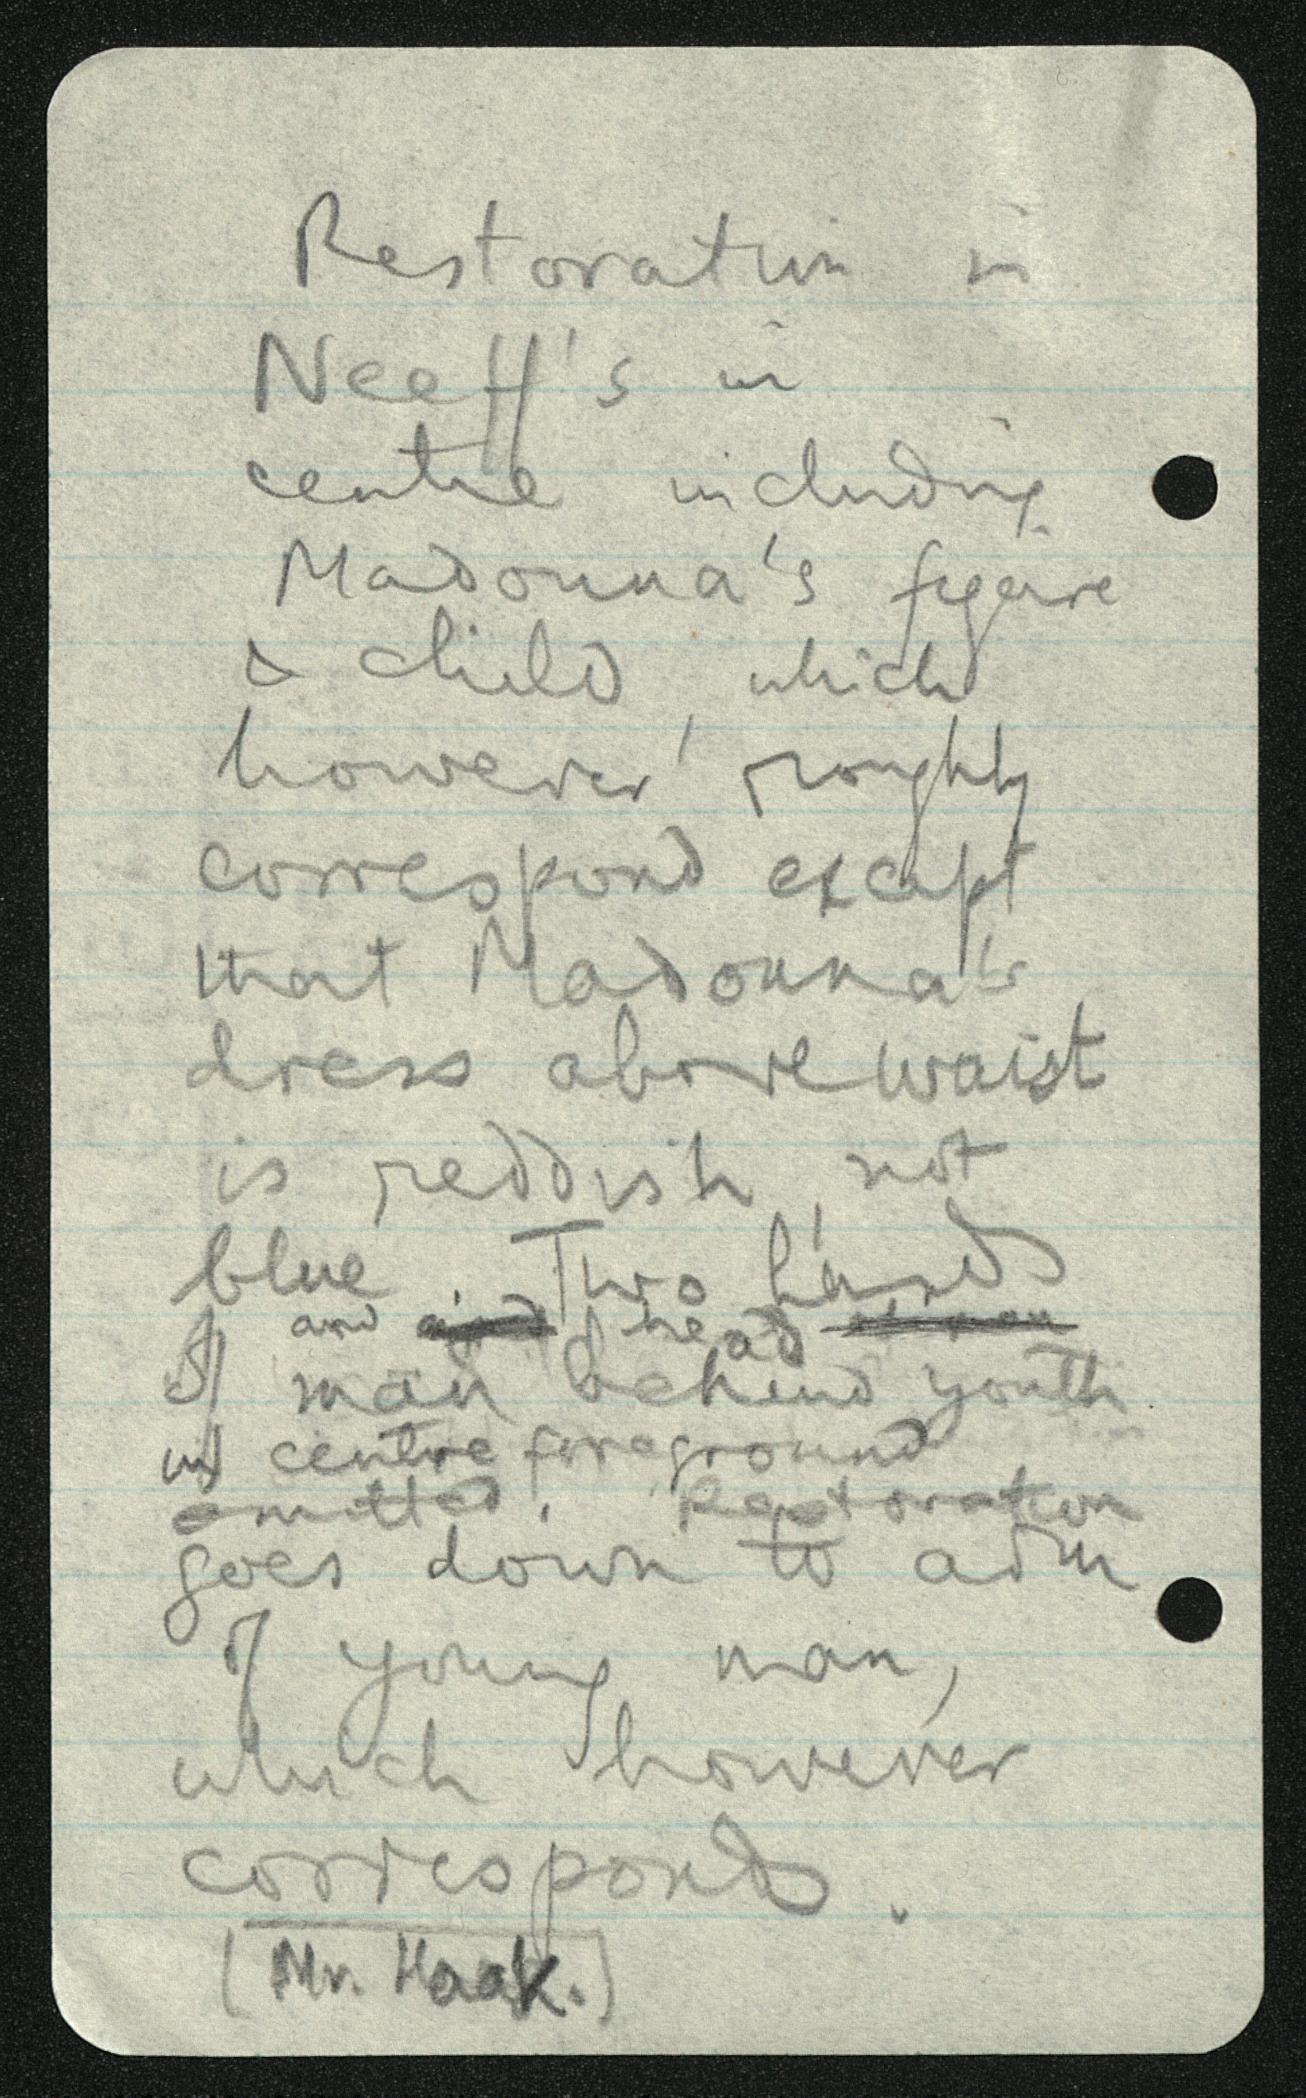 Restoration in
Neeff's in
centre including
Madonna's figure
& child, which
however roughly
correspond except
that Madonna's
dress above waist
is reddish, not
blue. Two hands
and head
of man behind youth
in centre foreground
omitted. Restoration
goes down to arm
of young man,
which however
corresponds.
[Mr. Haak.]